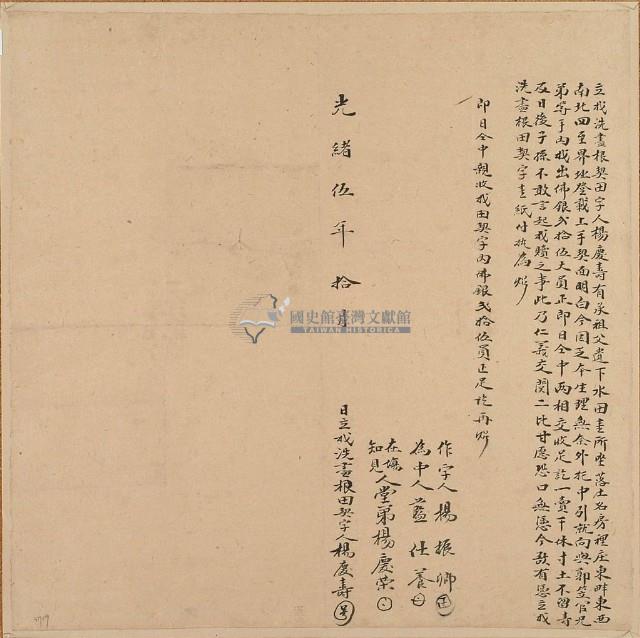 立找洗盡根契田字人楊慶壽有承祖父遺下水田壹所坐落土名房裡庄東畔東西
南北四至界址登載上手契面明白今因乏本生理無奈外托中引就向與鄭笠官兄
弟等手內找出佛銀弍拾伍大員正即日仝中兩相交收足訖一賣千休寸土不留壽
及日後子孫不敢言起找贖之事此乃仁義交関二比甘愿恐口無憑今欲有憑立找
洗盡根田契字壹紙付执為炤
即日仝中親收找田契字內佛銀弍拾伍員正足訖再炤
作字人楊振卿
為中人藍仕養
在塲知見人堂弟楊慶荣
光緒伍年拾月 日立找洗盡根田契字人楊慶壽
國史館臺灣文獻館
TAIWAN HISTORICA